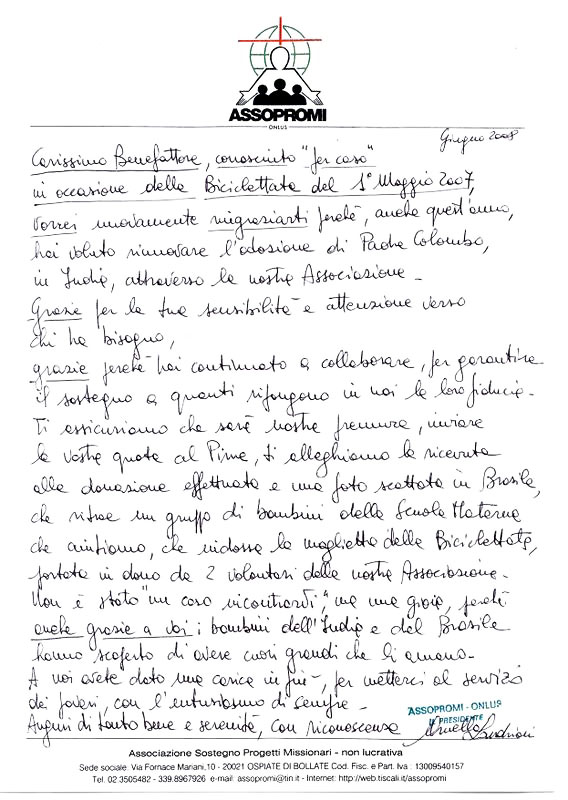 ASSOPROMI
ONLUS
Giugno 2008
Carissimo Benefattore, conosciuto "per caso"
in occasione della Biciclettata del 1° Maggio 2007,
vorrei nuovamente ringraziarti perchè, anche quest'anno,
hai voluto rinnovare l'adozione di Padre Colombo,
in India, attraverso la nostra Associazione -
Grazie per la tua sensibilità e attenzione verso
chi ha bisogno,
grazie perchè hai continuato a collaborare, per garantire
il sostegno a quanti ripongono in noi la loro fiducia -
Ti assicuriamo che sarà nostra premura, inviare
la vostra quota al Pime, ti alleghiamo la ricevuta
alla donazione effettuata e una foto scattata in Brasile,
che ritrae un gruppo di bambini della Scuola Materna
che aiutiamo, che indossa la maglietta della Biciclettata,
portata in dono da 2 volontari della nostra Associazione -
Non è stato "un caso incontrarci", ma una gioia, perchè
anche grazie a voi i bambini dell'India e del Brasile
hanno scoperto di avere cuori grandi che li amano -
A noi avete dato una carica in più - per metterci al servizio
dei poveri, con l'entusiasmo di sempre -
Auguri di tanto bene e serenità, con riconoscenza
ASSOPROMI - ONLUS
IL PRESIDENTE
Associazione Sostegno Progetti Missionari - non lucrativa
Sede sociale: Via Fornace Mariani,10 - 20021 OSPIATE DI BOLLATE Cod. Fisc. e Part. Iva : 13009540157
Tel. 02.3505482 - 339.8967926 e-mail: assopromi@tin.it - Internet: http://web.tiscali.it/assopromi